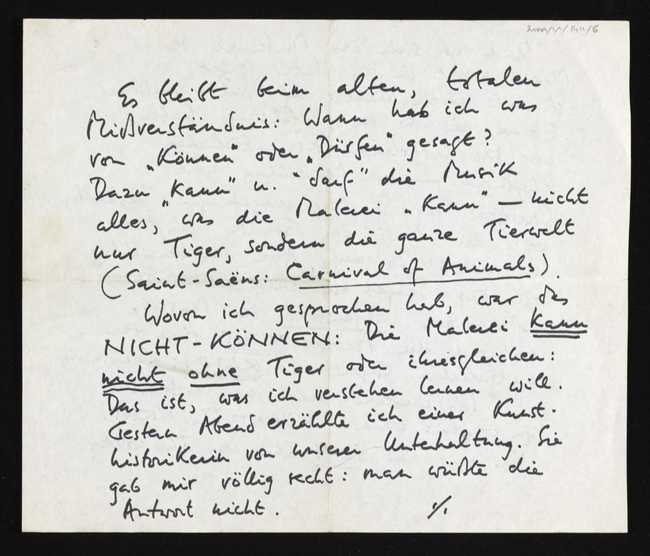 Es bleibt beim alten, totalen
Mißverständnis: Wann hab ich was
von „Können" oder „Dürfen" gesagt?
Dazu „kann" u. "darf" die Musik
alles, was die Malerei „kann" – nicht
nur Tiger, sondern die ganze Tierwelt
(Saint-Saëns: Carnival of Animals).
Wovon ich gesprochen hab, war das
NICHT-KÖNNEN: Die Malerei kann
nicht ohne Tiger oder ihresgleichen:
Das ist, was ich verstehen lernen will.
Gestern Abend erzählte ich einer Kunst-
historikerin von unserer Unterhaltung. Sie
gab mir völlig recht: man wüßte die
Antwort nicht. ./.